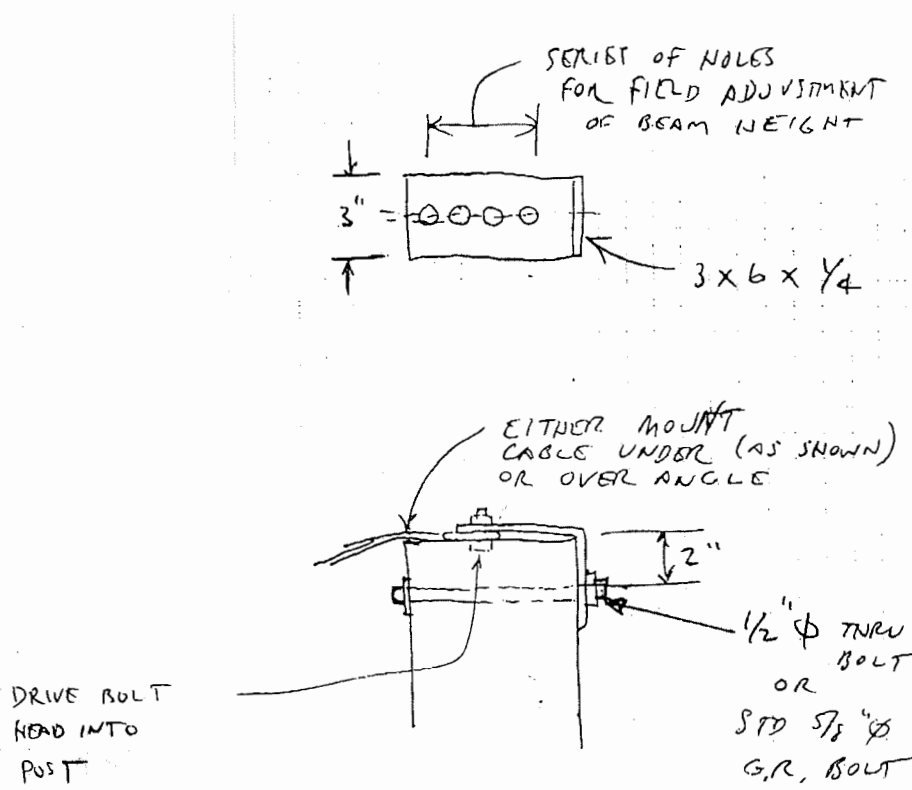 SERIES OF HOLES
FOR FIELD ADJUSTMENT
OF BEAM HEIGHT
3"
3 x 6 x 1/4
EITHER MOUNT
CABLE UNDER (AS SHOWN)
OR OVER ANGLE
2"
1/2"ϕ THRU
BOLT
OR
STD 5/8"ϕ
G.R. BOLT
DRIVE BOLT
HEAD INTO
POST